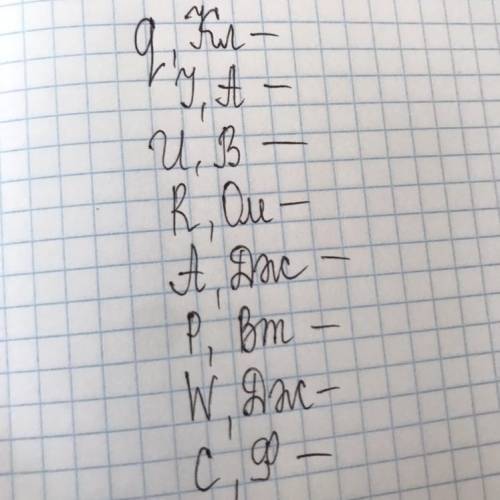 q, Кл —
I, А —
U, В —
R, Ом —
A, Дж —
P, Вт —
W, Дж —
C, Ф —